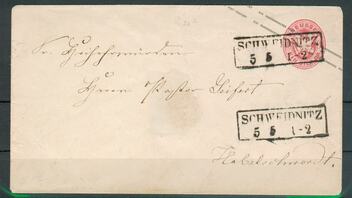 SCHWEIDNITZ
5 5 1-2
Sr. Hochehrwürden
Herrn Pastor Seifert
SCHWEIDNITZ
5 5 1-2
Habelschwerdt.